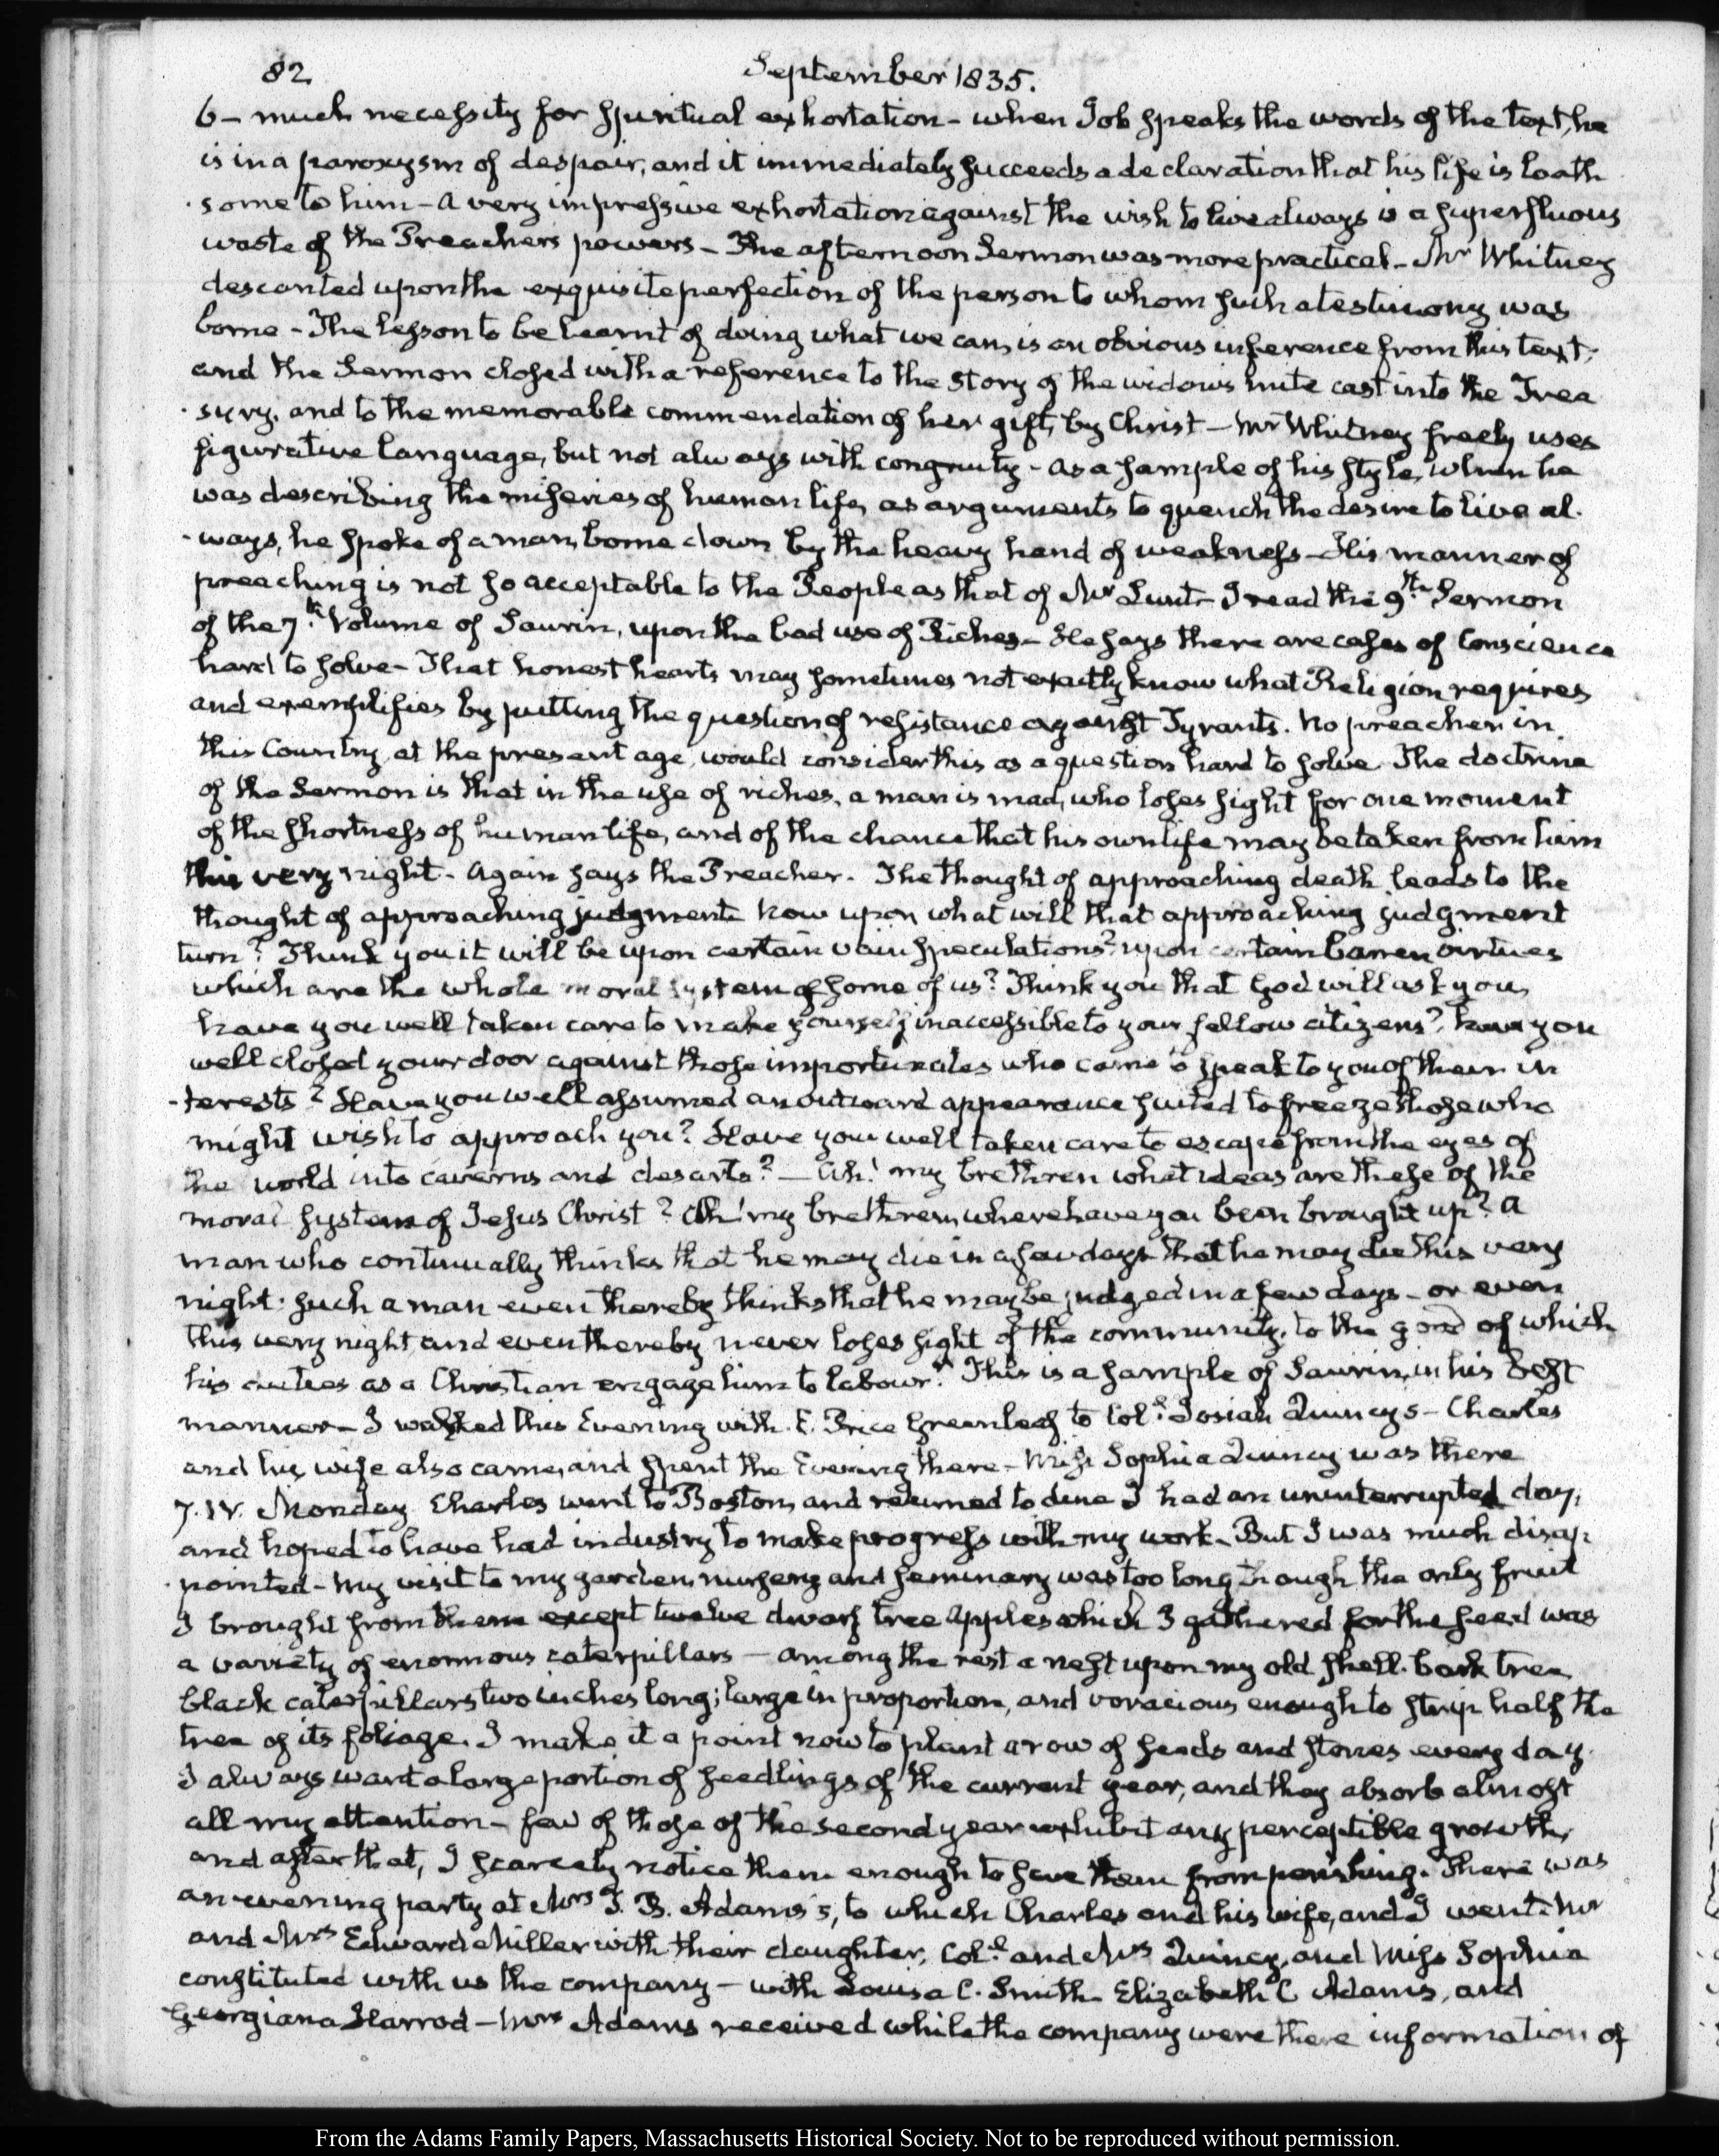 82
September 1835.
6 - much necessity for spiritual exhortation - when Job speaks the words of the text, he
is in a paroxysm of despair, and it immediately succeeds a declaration that his life is loath
-some to him - A very impressive exhortation against the wish to live always is a superfluous
waste of the Preachers powers - The afternoon Sermon was more practical - Mr Whitney
descanted upon the exquisite perfection of the person to whom such a testimony was
borne - The lesson to be learnt of doing what we can, is an obvious inference from this text;
and the Sermon closed with a reference to the story of the widow's mite cast into the Trea
-sury, and to the memorable commendation of her gift, by Christ - Mr Whitney freely uses
figurative language, but not always with congruity - As a sample of his style, when he
was describing the miseries of human life, as arguments to quench the desire to live al-
-ways, he spoke of a man, borne down by the heavy hand of weakness - His manner of
preaching is not so acceptable to the People as that of Mr Lunt - I read the 9th Sermon
of the 7th Volume of Saurin, upon the bad use of Riches - He says there are cases of Conscience
hard to solve - That honest hearts may sometimes not exactly know what Religion requires
and exemplifies by putting the question of resistance against Tyrants. No preacher in
this Country, at the present age, would consider this as a question hard to solve. The doctrine
of the Sermon is that in the use of riches, a man is mad, who loses sight for one moment
of the shortness of human life, and of the chance that his own life may be taken from him
this very night - Again says the Preacher. The thought of approaching death leads to the
thought of approaching judgment. Now upon what will that approaching judgment
turn? Think you it will be upon certain vain speculations? upon certain barren virtues
which are the whole moral system of some of us? Think you that God will ask you,
have you well taken care to make yourself inaccessible to your fellow citizens? have you
well closed your door against those importunates who came to speak to you of their in
-terests? Have you well assumed an outward appearance suited to freeze those who
might wish to approach you? Have you well taken care to escape from the eyes of
the world into caverns and desarts? - Ah! my brethren what ideas are these of the
moral system of Jesus Christ? Ah! my brethren, where have you been brought up? A
man who continually thinks that he may die in a few days that he may die this very
night: such a man even thereby thinks that he may be judged in a few days - or even
this very night and even thereby never loses sight of the community, to the good of which
his duties as a Christian engage him to labour." This is a sample of Saurin, in his best
manner - I walked this Evening with E. Price Greenleaf to Col. Josiah Quincy's - Charles
and his wife also came, and spent the Evening there - Miss Sophia Quincy was there
7. IV. Monday. Charles went to Boston, and returned to dine I had an uninterrupted day,
and hoped to have had industry to make progress with my work. But I was much disap
-pointed - My visit to my garden, nursery and seminary was too long though the only fruit
I brought from them except twelve dwarf tree apples which I gathered for the seed was
a variety of enormous caterpillars - among the rest a nest upon my old shell-bark tree
black caterpillars two inches long; large in proportion, and voracious enough to strip half the
tree of its foliage. I make it a point now to plant a row of seeds and stones every day.
I always want a large portion of seedlings of the current year, and they absorb almost
all my attention - few of those of the second year exhibit any perceptible growth,
and after that, I scarcely notice them enough to save them from perishing. There was
an evening party at Mrs T. B. Adams's, to which Charles and his wife, and I went. Mr
and Mrs Edward Miller with their daughter, Col. and Mrs Quincy, and Miss Sophia
constituted with us the company - with Louisa C. Smith - Elizabeth C Adams, and
Georgiana Harrod - Mrs Adams received while the company were there information of
From the Adams Family Papers, Massachusetts Historical Society. Not to be reproduced without permission.